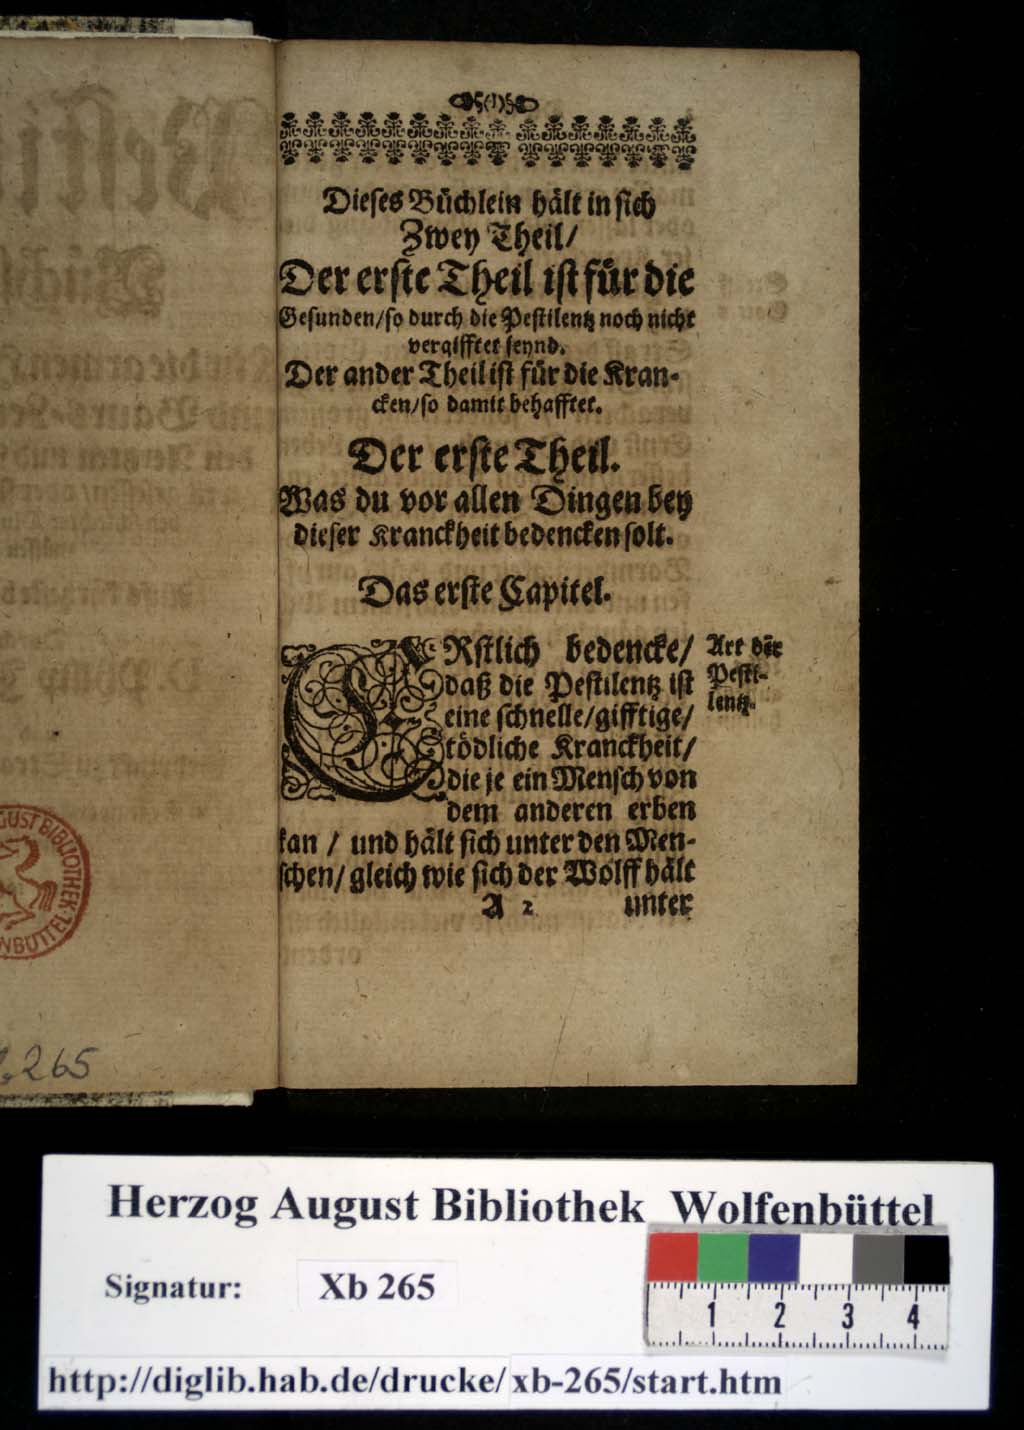 (1)
Dieses Büchlein hält in sich
Zwey Theil/
Der erste Theil ist für die
Gesunden/so durch die Pestilentz noch nicht
vergifftet seynd.
Der ander Theil ist für die Kran-
cken/so damit behafftet.
Der erste Theil.
Was du vor allen Dingen bey
dieser Kranckheit bedencken solt.
Das erste Capitel.
ERstlich bedencke/
daß die Pestilentz ist
eine schnelle/gifftige/
tödliche Kranckheit/
die je ein Mensch von
dem anderen erben
kan / und hält sich unter den Men-
schen/ gleich wie sich der Wolff hält
A 2 unter
Art der
Pesti-
lentz.
265
Herzog August Bibliothek Wolfenbüttel
Signatur: Xb 265
1 2 3 4
http://diglib.hab.de/drucke/xb-265/start.htm